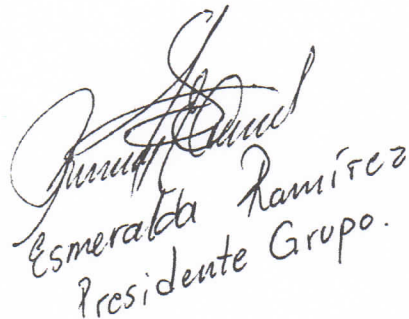 Esmeralda Ramírez
Presidente Grupo.